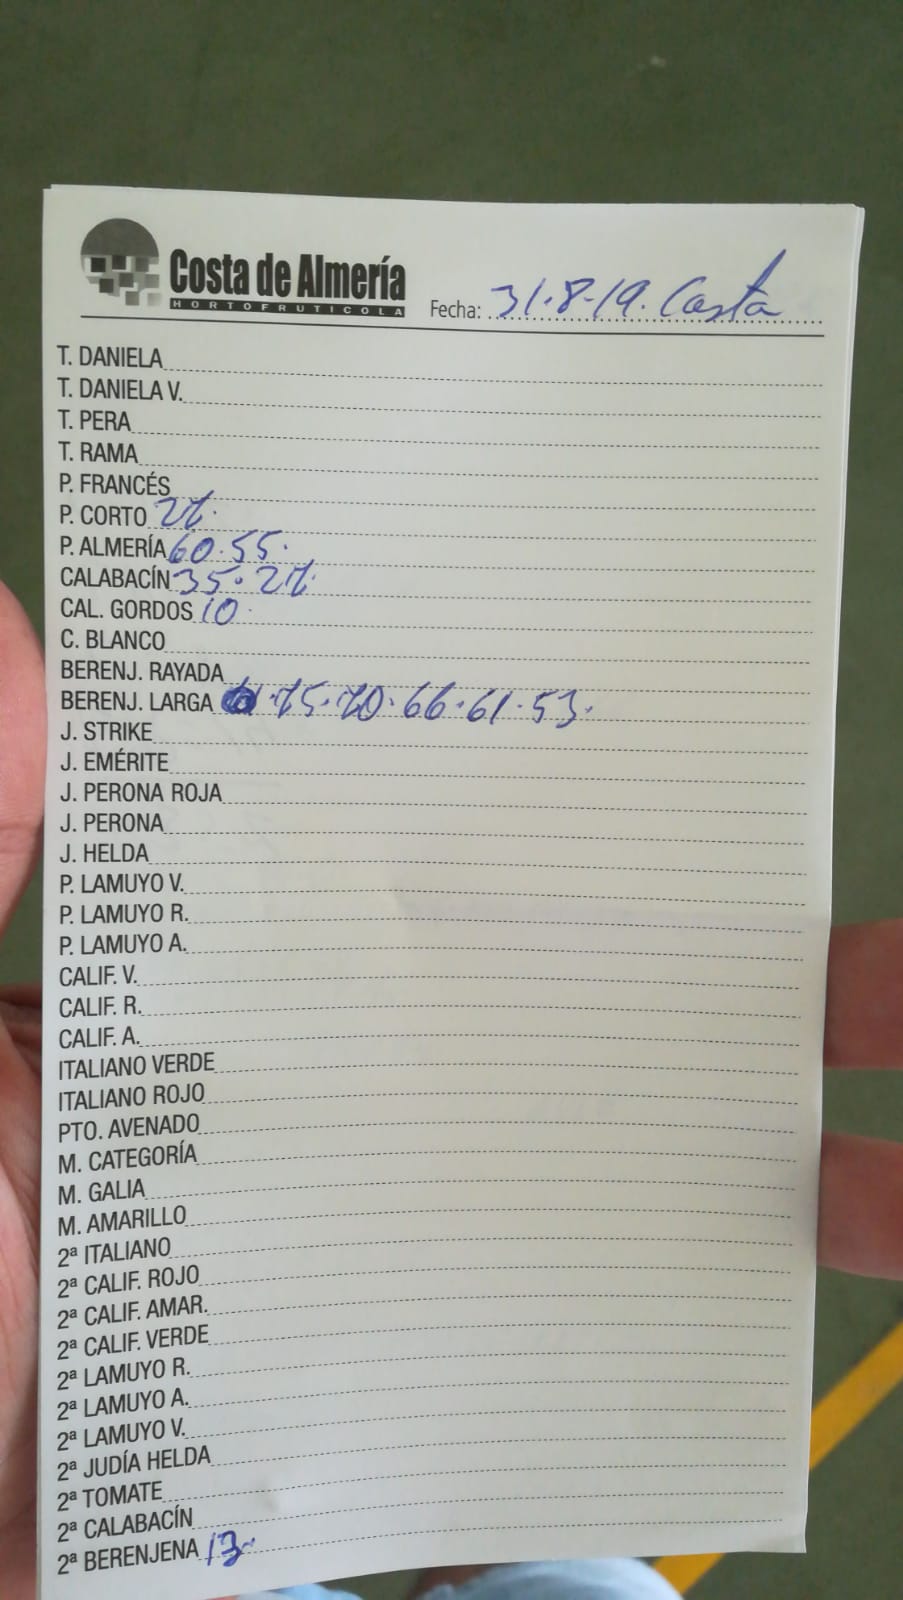 Costa de Almería
HORTOFRUTICOLA
Fecha: 31-8-19. Costa
T. DANIELA
T. DANIELA V.
T. PERA
T. RAMA
P. FRANCÉS
P. CORTO 27.
P. ALMERÍA 60.55.
CALABACÍN 35.27.
CAL. GORDOS 10
C. BLANCO
BERENJ. RAYADA
BERENJ. LARGA .75.70.66.61.53.
J. STRIKE
J. EMÉRITE
J. PERONA ROJA
J. PERONA
J. HELDA
P. LAMUYO V.
P. LAMUYO R.
P. LAMUYO A.
CALIF. V.
CALIF. R.
CALIF. A.
ITALIANO VERDE
ITALIANO ROJO
PTO. AVENADO
M. CATEGORÍA
M. GALIA
M. AMARILLO
2ª ITALIANO
2ª CALIF. ROJO
2ª CALIF. AMAR.
2ª CALIF. VERDE
2ª LAMUYO R.
2ª LAMUYO A.
2ª LAMUYO V.
2ª JUDÍA HELDA
2ª TOMATE
2ª CALABACÍN
2ª BERENJENA 13.